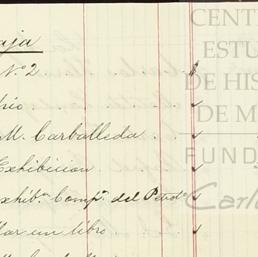 aja
Nº 2
M. Carballeda
Exhibicion
xhibⁿ Compª del Petrolº
en libro
CENT
ESTU
DE HIS
DE M
FUND
Carl